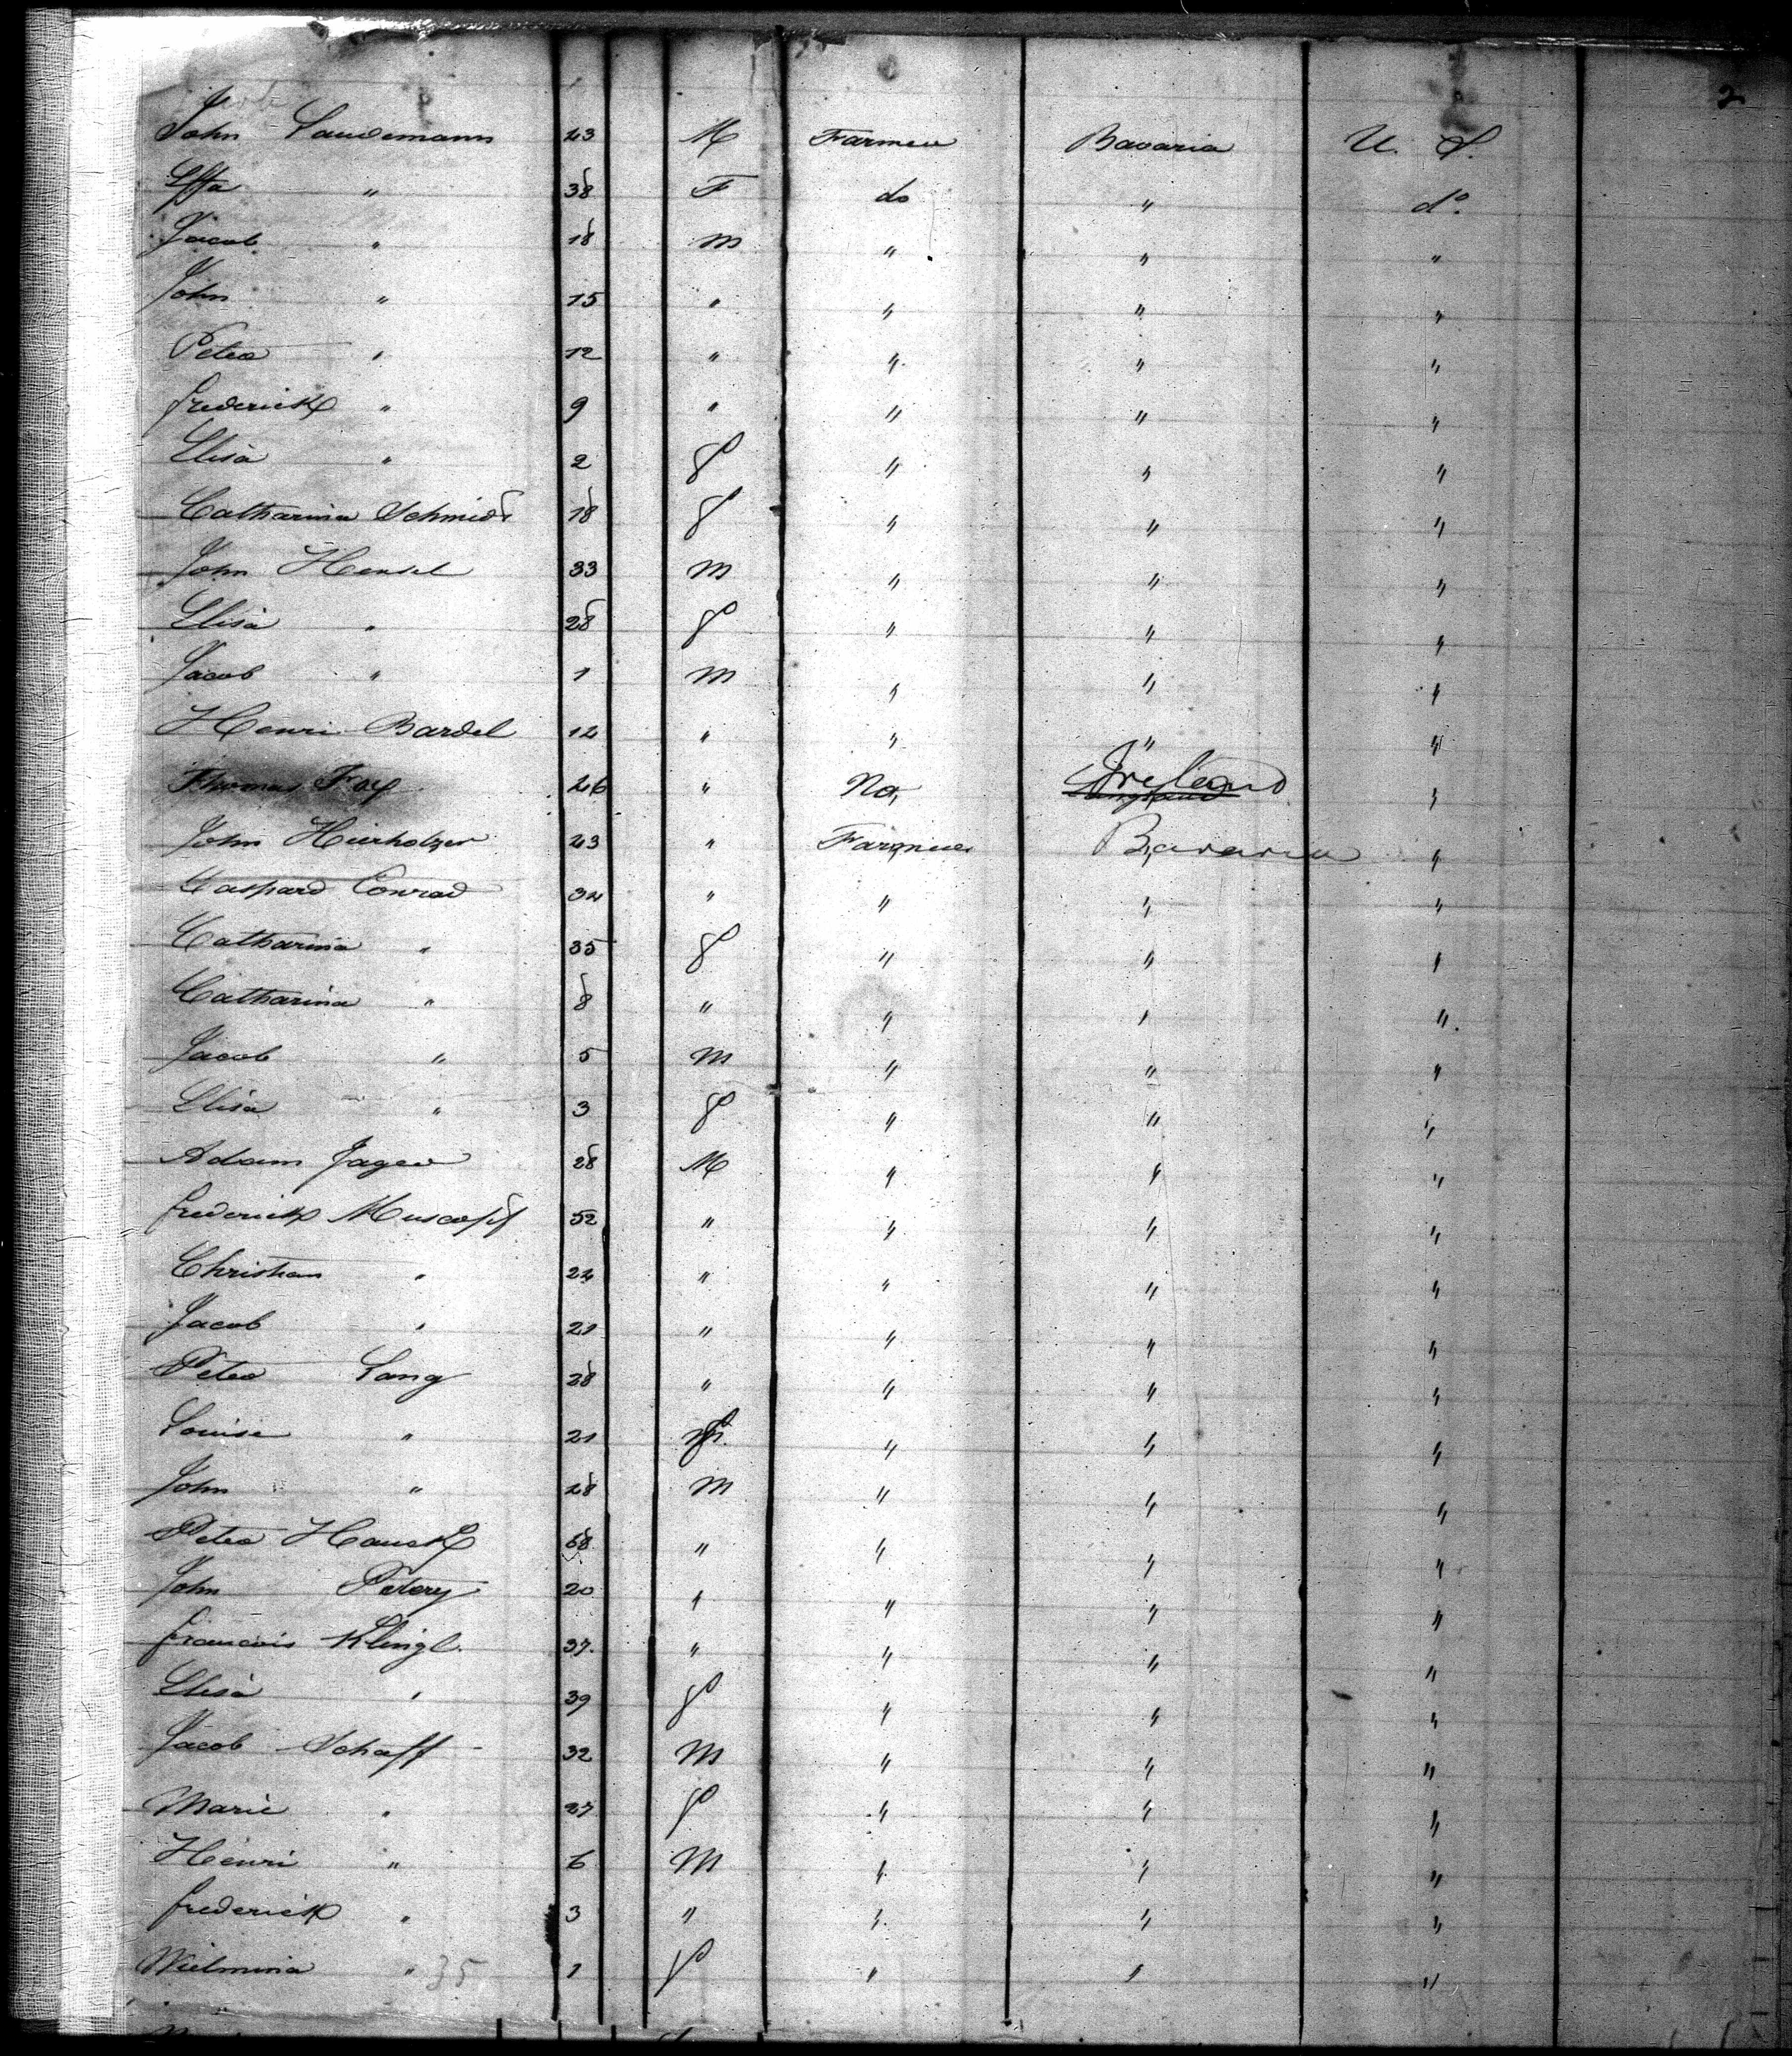 2
John Laudemann 43 M Farmer Bavaria U. S.
Effa " 38 F do " do
Jacob " 18 M " " "
John " 15 " " " "
Peter " 12 " " " "
frederick " 9 " " " "
Elisa " 2 f " " "
Catharina Schmidt 18 f " " "
John Hensel 33 M " " "
Elisa " 28 f " " "
Jacob " 1 M " " "
Henri Bardel 12 " " " "
Thomas Foy 26 " No, Ireland "
John Hierholzer 23 " Farmer Bavaria "
Caspard Conrad 34 " " " "
Catharina " 35 f " " "
Catharina " 8 " " " "
Jacob " 5 M " " "
Elisa " 3 f " " "
Adam Jager 28 M " " "
frederick 52 " " " "
Christian " 24 " " " "
Jacob " 21 " " " "
Peter Lang 28 " " " "
Louise " 21 f " " "
John " 28 M " " "
Peter Hauck 58 " " " "
John Petery 20 " " " "
francois Klingl. 37. " " " "
Elisa " 39 f " " "
Jacob Schaff 32 M " " "
Marie " 27 f " " "
Henri " 6 M " " "
frederick " 3 " " " "
Wielmina " 35 1 f " " "